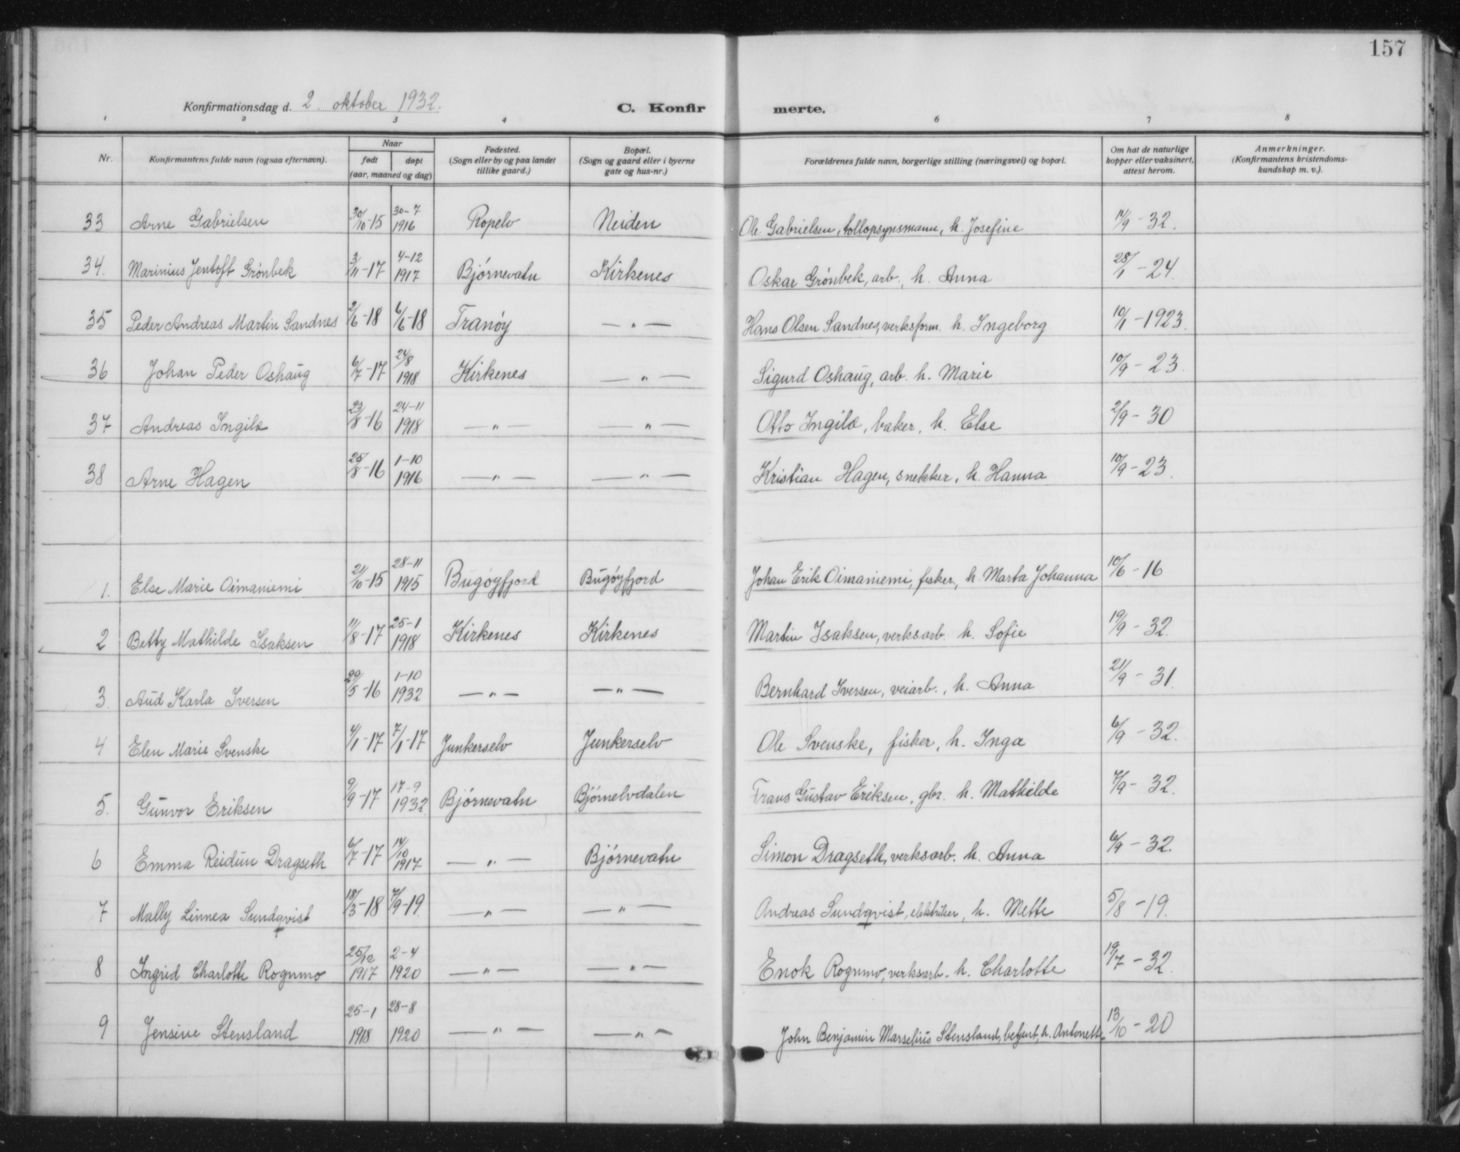 157
Konfirmationsdag d. 2. oktober 1932. C. Konfirmerte.
1 2 3 4 6 7 8
Nr. Konfirmantens fulde navn (ogsaa efternavn). Naar født døpt (aar, maaned og dag) Fødested. (Sogn eller by og paa landet tillike gaard.) Bopæl. (Sogn og gaard eller i byerne gate og hus-nr.) Forældrenes fulde navn, borgerlige stilling (næringsvei) og bopæl. Om hat de naturlige kopper eller vaksinert, attest herom. Anmerkninger. (Konfirmantens kristendoms-kundskap m. v.).
33 Arne Gabrielsen 30/10-15 30-7 1916 Ropelv Neiden Ole Gabrielsen, tollopsynsmann, h. Josefine 14/9-32.
34. Marinius Jentoft Grønbek 3/11-17 4-12 1917 Bjørnevatn Kirkenes Oskar Grønbek, arb., h. Anna 28/1-24
35 Peder Andreas Martin Sandnes 2/6-18 6/6-18 Tranøy — " — Hans Olsen Sandnes, verksform. h. Ingeborg 10/1-1923.
36 Johan Peder Oshaug 6/7-17 24/8 1918 Kirkenes — " — Sigurd Oshaug, arb. h. Marie 10/9-23.
37 Andreas Ingilæ 23/8-16 24-11 1918 — " — — " — Otto Ingilæ, baker, h. Else 2/9-30
38 Arne Hagen 25/8-16 1-10 1916 — " — — " — Kristian Hagen, snekker, h. Hanna 10/9-23.
1. Else Marie Oimaniemi 21/10-15 28-11 1915 Bugøyfjord Bugøyfjord Johan Erik Oimaniemi, fisker, h Marta Johanna 10/6-16
2 Betty Mathilde Isaksen 11/8-17 25-1 1918 Kirkenes Kirkenes Martin Isaksen, verksarb. h. Sofie 19/9-32.
3. Aud Karla Iversen 29/5-16 1-10 1932 — " — — " — Bernhard Iversen, veiarb., h. Anna 21/9-31.
4 Elen Marie Svenske 4/1-17 7/1-17 Junkerselv Junkerselv Ole Svenske, fisker, h. Inga 6/9-32.
5. Gunvor Eriksen 9/9-17 17-9 1932 Bjørnevatn Bjørnelvdalen Frans Gustav Eriksen, gbr. h. Mathilde 7/9-32.
6 Emma Reidun Dragseth 6/7-17 14/10 1917 — " — Bjørnevatn Simon Dragseth, verksarb. h. Anna 6/9-32.
7 Mally Linnea Sundqvist 18/3-18 7/9-19. — " — — " — Andreas Sundqvist, elektriker, h. Mette 5/8-19.
8 Ingrid Charlotte Rognmo 25/12 1917 2-4 1920 — " — — " — Enok Rognmo, verksarb. h. Charlotte 19/7-32.
9 Jensine Stensland 25-1 1918 28-8 1920 — " — — " — John Benjamin Marselius Stensland, betjent, h. Antonette 13/10-20